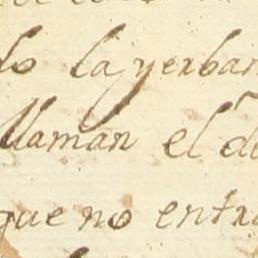 do la yerban
llaman el d
que no entra